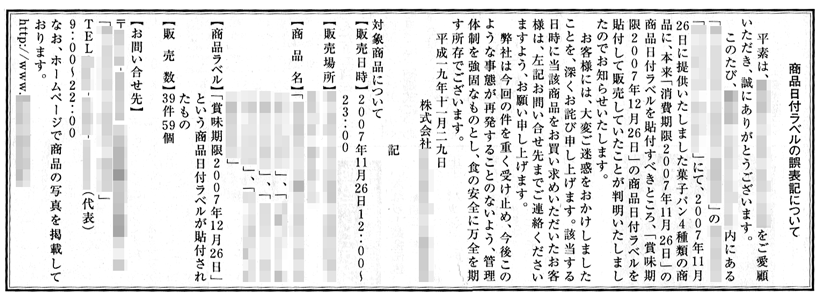 商品日付ラベルの誤表記について
平素は、をご愛顧
いただき、誠にありがとうございます。
このたび、内にある
「」の
「」にて、2007年11月
26日に提供いたしました菓子パン4種類の商
品に、本来「消費期限2007年11月26日」の
商品日付ラベルを貼付すべきところ、「賞味期
限2007年12月26日」の商品日付ラベルを
貼付して販売していたことが判明いたしまし
たのでお知らせいたします。
お客様には、大変ご迷惑をおかけしました
ことを、深くお詫び申し上げます。該当する
日時に当該商品をお買い求めいただいたお客
様は、左記お問い合せ先までご連絡ください
ますよう、お願い申し上げます。
弊社は今回の件を重く受け止め、今後この
ような事態が再発することのないよう、管理
体制を強固なものとし、食の安全に万全を期
す所存でございます。
平成一九年十一月二九日
株式会社
記
対象商品について
【販売日時】2007年11月26日12:00〜
23:00
【販売場所】
【商品名】「」、
「」、
「」、
「」
【商品ラベル】「賞味期限2007年12月26日」
という商品日付ラベルが貼付され
たもの
【販売数】39件59個
【お問い合せ先】
〒
「」
TEL（代表）
9:00〜22:00
なお、ホームページで商品の写真を掲載して
おります。
http://www.